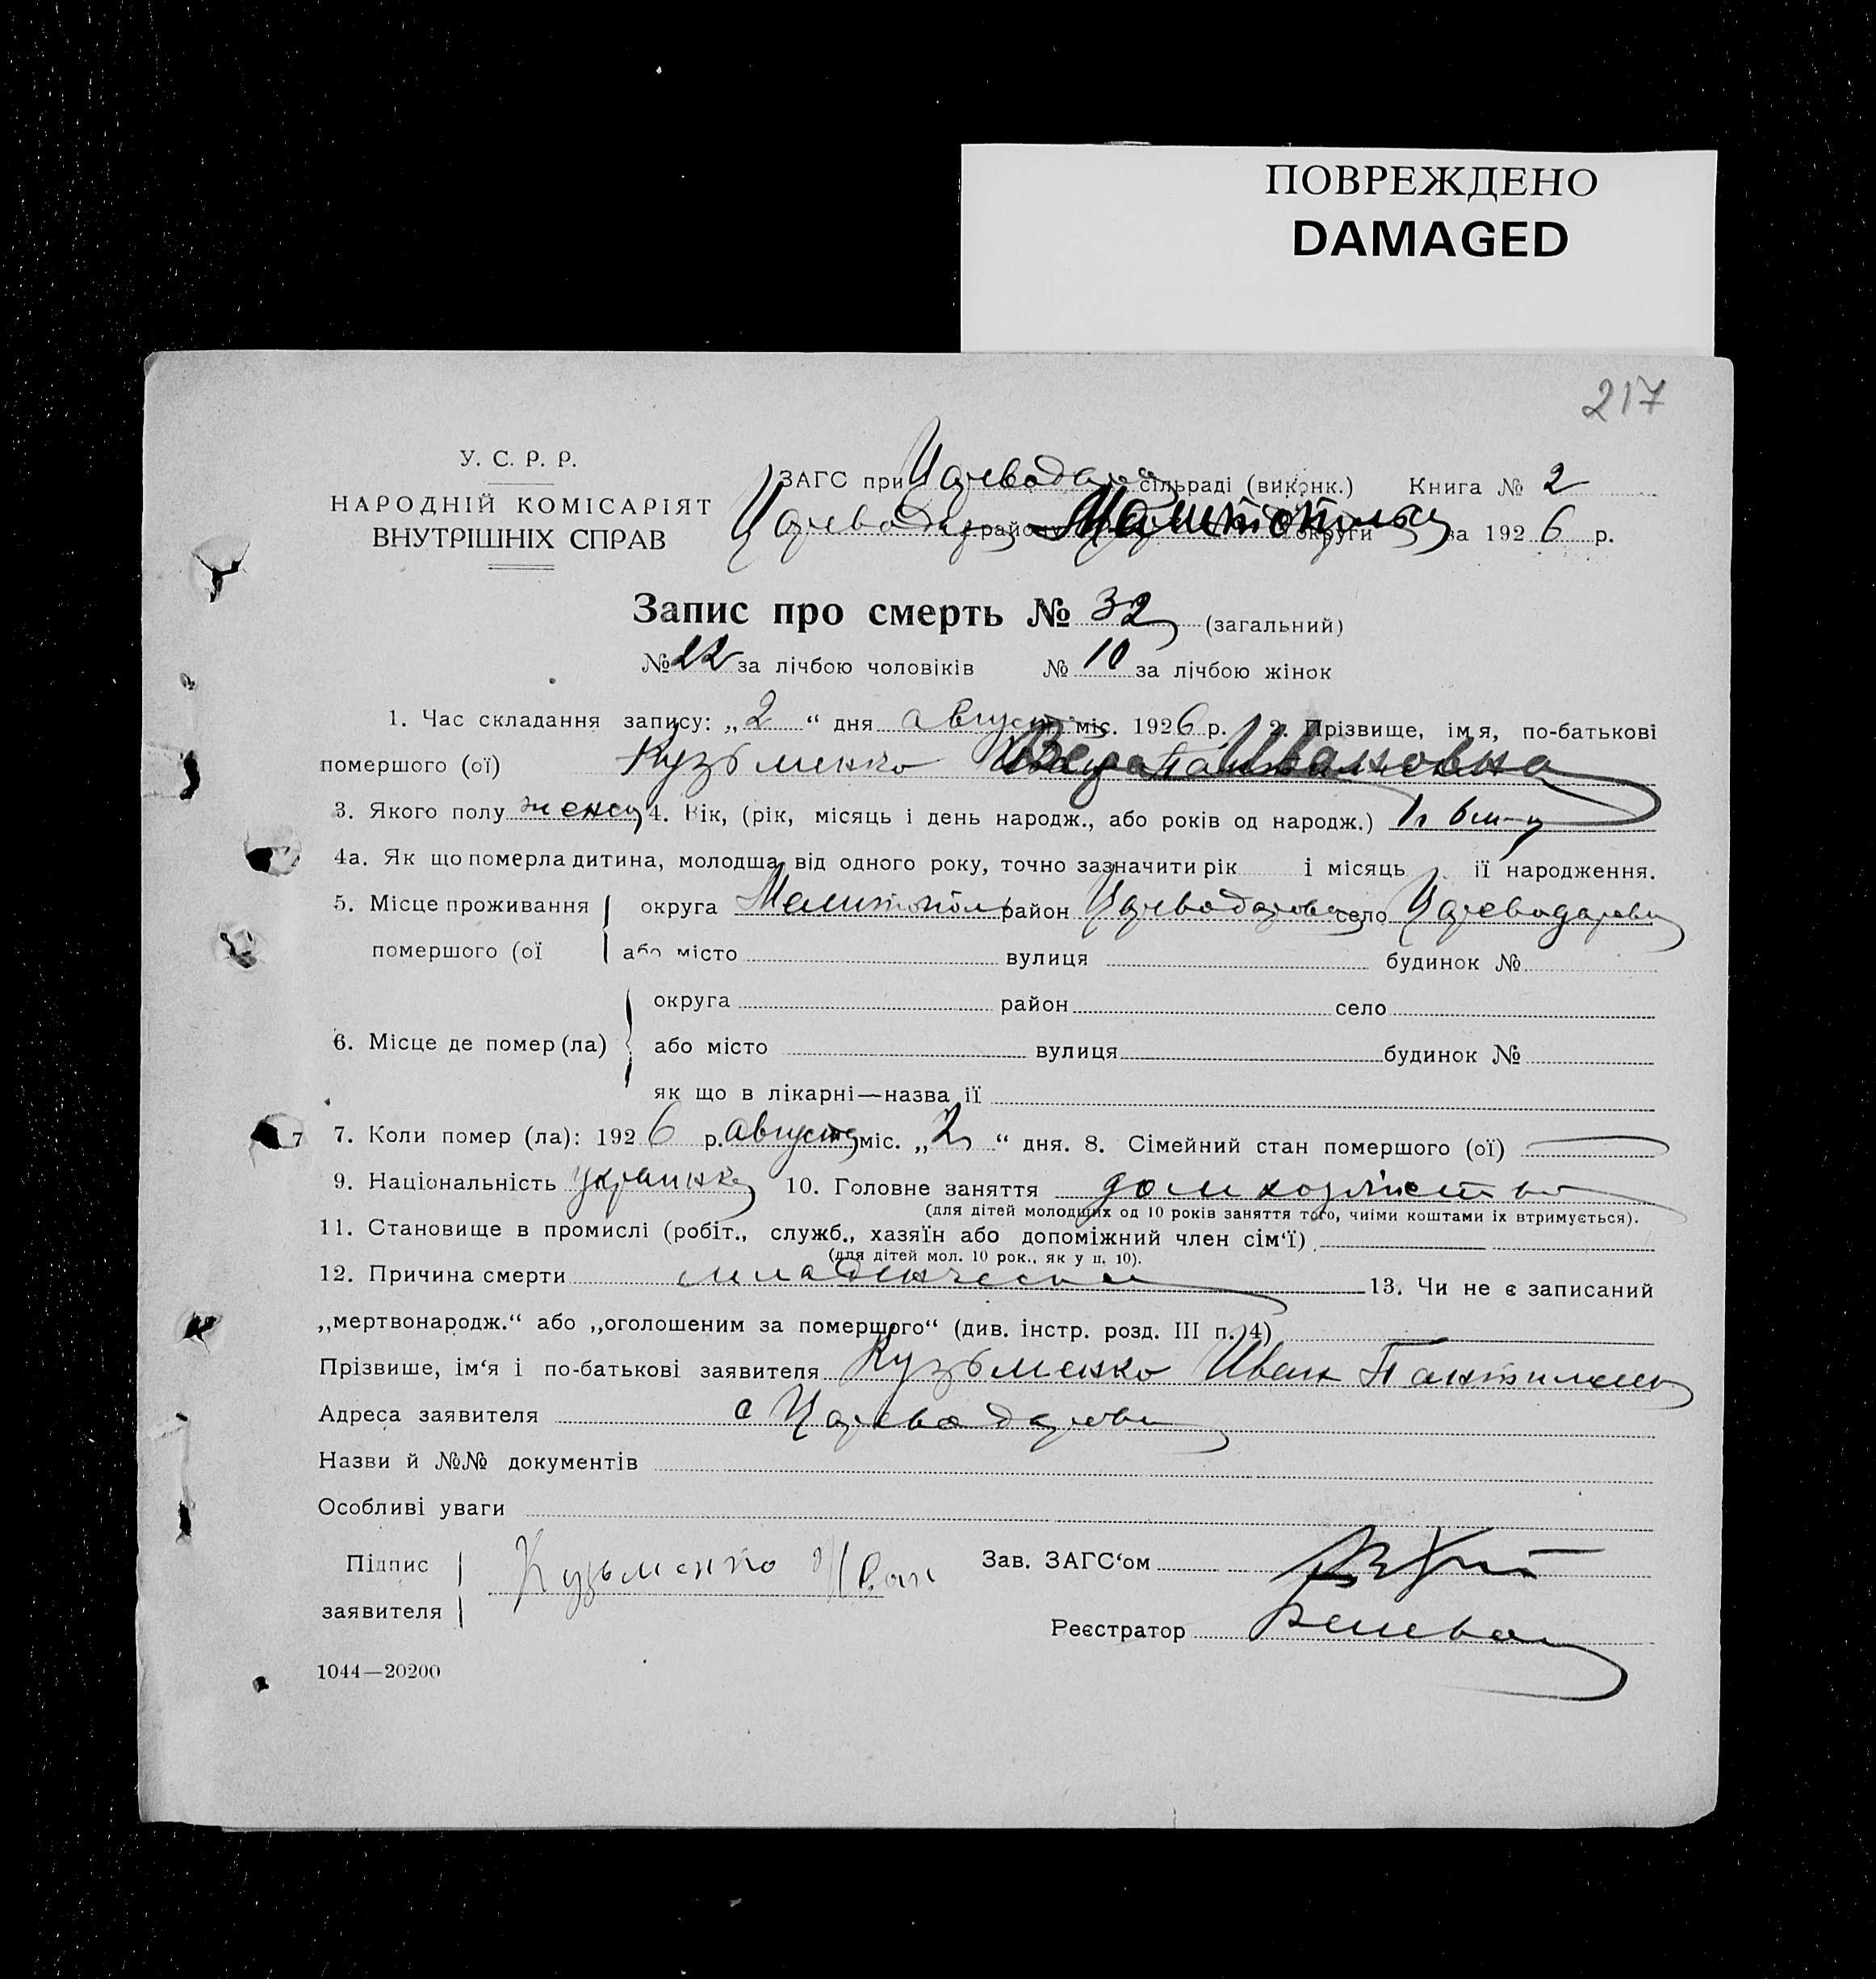 ПОВРЕЖДЕНО
DAMAGED
217
У. С. Р. Р.
НАРОДНІЙ КОМІСАРІЯТ
ВНУТРІШНІХ СПРАВ
ЗАГС при Царевода сільраді (виконк.) Книга № 2
району округи за 1926 р.
Запис про смерть № 32 (загальний)
№ 22 за лічбою чоловіків № 10 за лічбою жінок
1. Час складання запису: „2“ дня август міс. 1926 р. 2. Прізвище, ім я, по-батькові
помершого (ої) Кузьменко Вера Ивановна
3. Якого полу женск 4. Вік, (рік, місяць і день народж., або років од народж.) 1 г 6
4а. Як що померла дитина, молодша від одного року, точно зазначити рік і місяць її народження.
5. Місце проживання округа Мелитопол район Цареводаровск село Цареводаровк
помершого (ої або місто вулиця будинок №
округа район село
6. Місце де помер (ла) або місто вулиця будинок №
як що в лікарні—назва її
7 7. Коли помер (ла): 1926 р. август міс. „2“ дня. 8. Сімейний стан помершого (ої)
9. Національність украинка 10. Головне заняття
(для дітей молодших од 10 років заняття того, чиїми коштами їх втримується).
11. Становище в промислі (робіт., служб., хазяїн або допоміжний член сім‘ї)
(для дітей мол. 10 рок., як у п. 10).
12. Причина смерти младенческая 13. Чи не є записаний
„мертвонародж.“ або „оголошеним за помершого“ (див. інстр. розд. III п. 4)
Прізвище, ім‘я і по-батькові заявителя Кузьменко Иван
Адреса заявителя с Цареводаровк
Назви й №№ документів
Особливі уваги
Підпис Кузьменко Иван Зав. ЗАГС‘ом
заявителя
Реєстратор
1044—20200